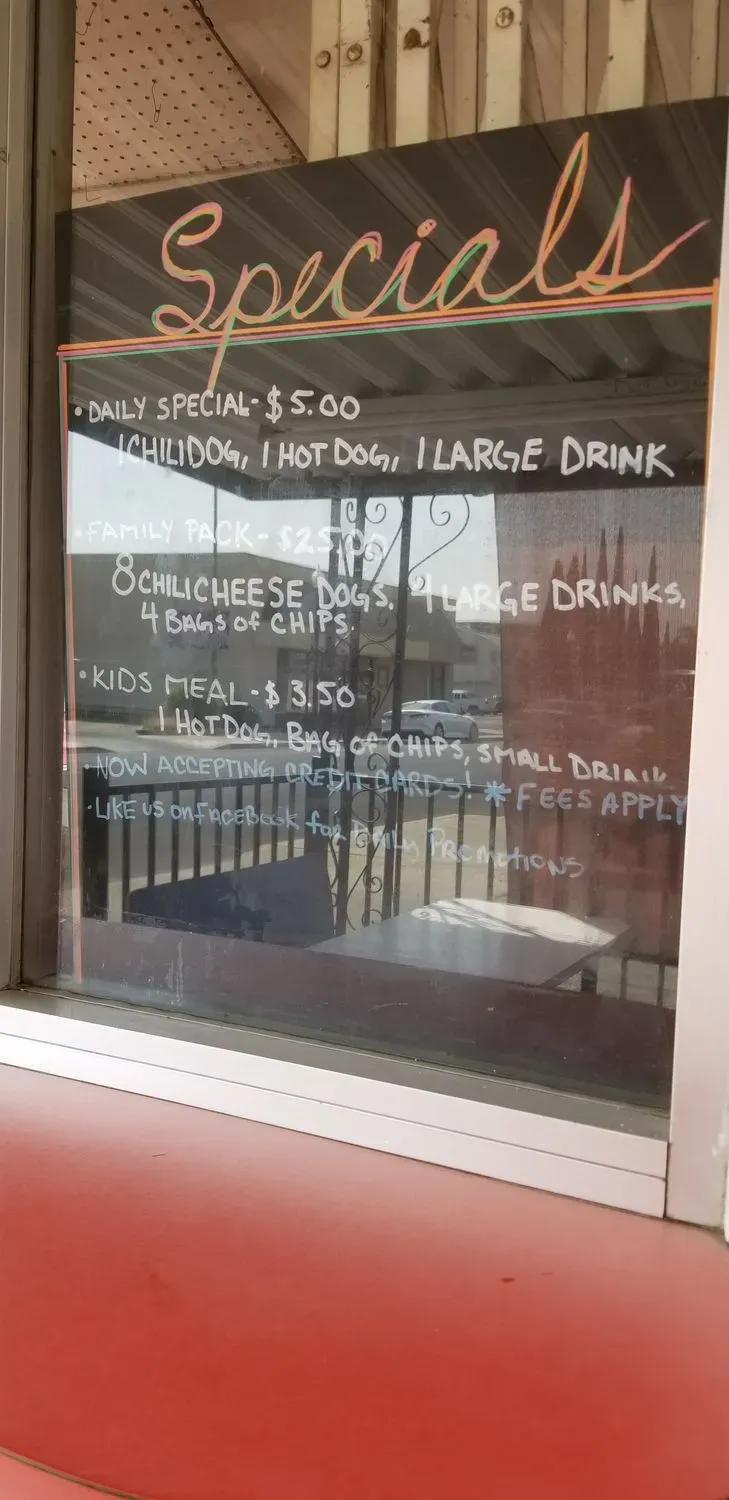 Specials
• DAILY SPECIAL - $5.00
1 CHILIDOG, 1 HOT DOG, 1 LARGE DRINK
• FAMILY PACK - $25.00
8 CHILICHEESE DOGS, 4 LARGE DRINKS,
4 BAGS OF CHIPS.
• KIDS MEAL - $3.50
1 HOTDOG, BAG OF CHIPS, SMALL DRINK
• NOW ACCEPTING CREDIT CARDS! * FEES APPLY
• LIKE US ON FACEBOOK for DAILY PROMOTIONS